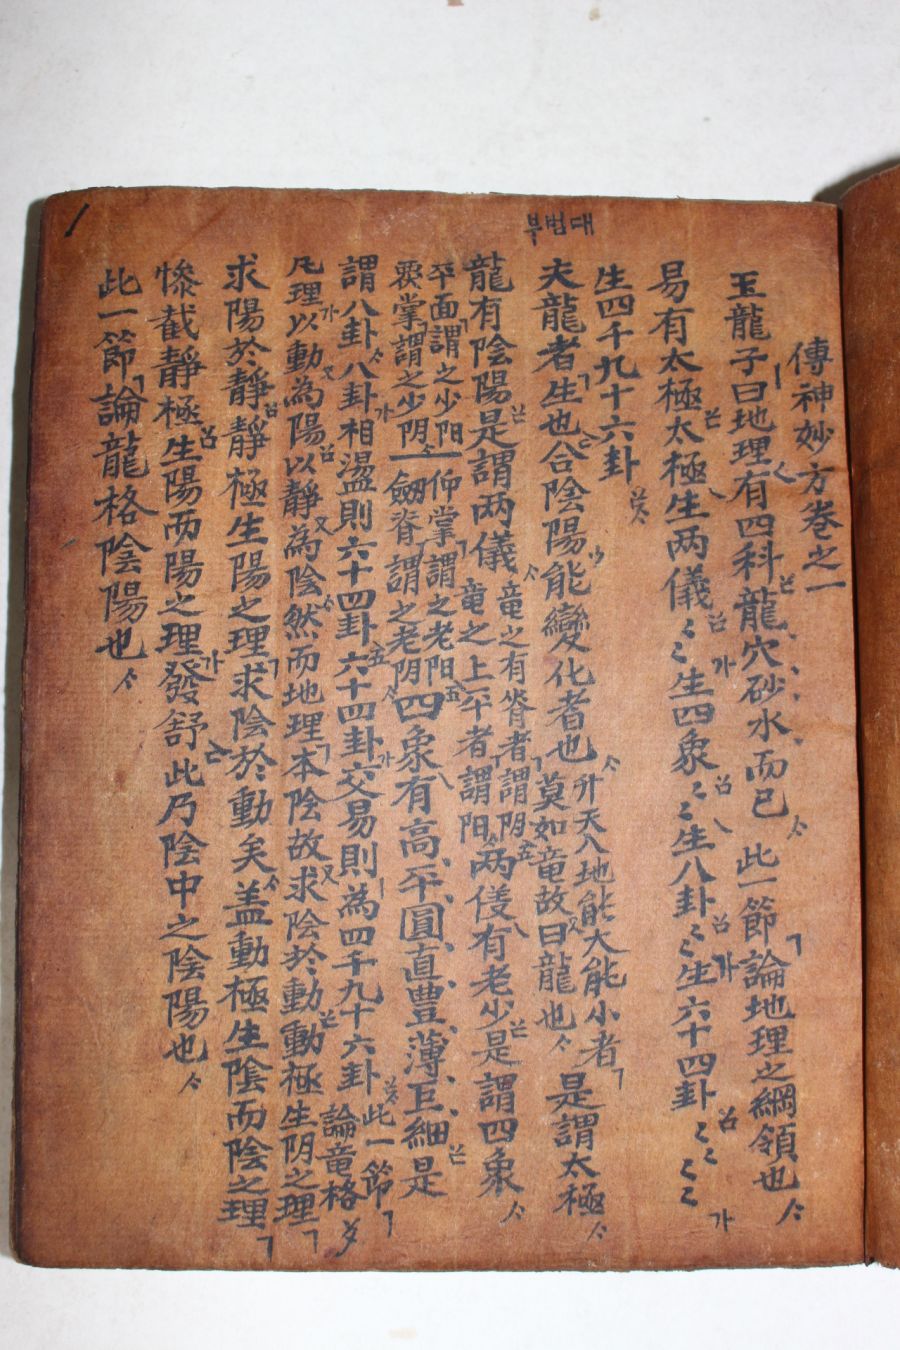 傳神妙方卷之一
玉龍子曰地理有四科龍穴砂水而已 此一節論地理之綱領也
易有太極太極生两儀〻〻生四象〻〻生八卦〻〻生六十四卦〻〻〻〻
生四千九十六卦
대범부
夫龍者生也合陰陽能變化者也 升天入地能大能小者 莫如竜故曰龍也 是謂太極
龍有陰陽是謂两儀 竜之有脊者謂阴 竜之上平者謂阳 两儀有老少是謂四象
平面謂之少阳 仰掌謂之老阳
覆掌謂之少阴 劒脊謂之老阴 四象有高平圓直豊薄巨細是
謂八卦八卦相盪則六十四卦六十四卦交易則為四千九十六卦 此一節論竜格
凡理以動為陽以靜為陰然而地理本陰故求陰於動動極生阴之理
求陽於靜靜極生陽之理求陰於動矣盖動極生陰而陰之理
慘截靜極生陽而陽之理發舒此乃陰中之陰陽也
此一節論龍格陰陽也